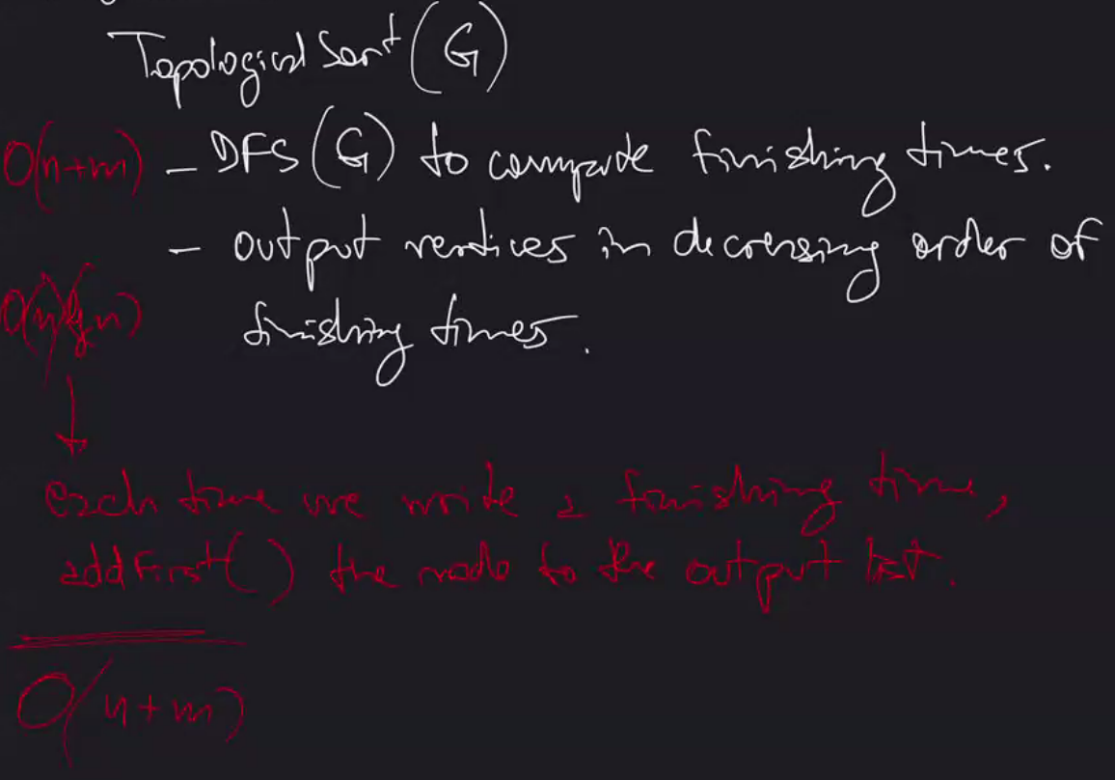 Topological Sort (G)
O(n+m) - DFS (G) to compute finishing times.
- output vertices in decreasing order of
O(n lg n) finishing times.
↓
each time we write a finishing time,
addFirst() the node to the output list.
O(n+m)